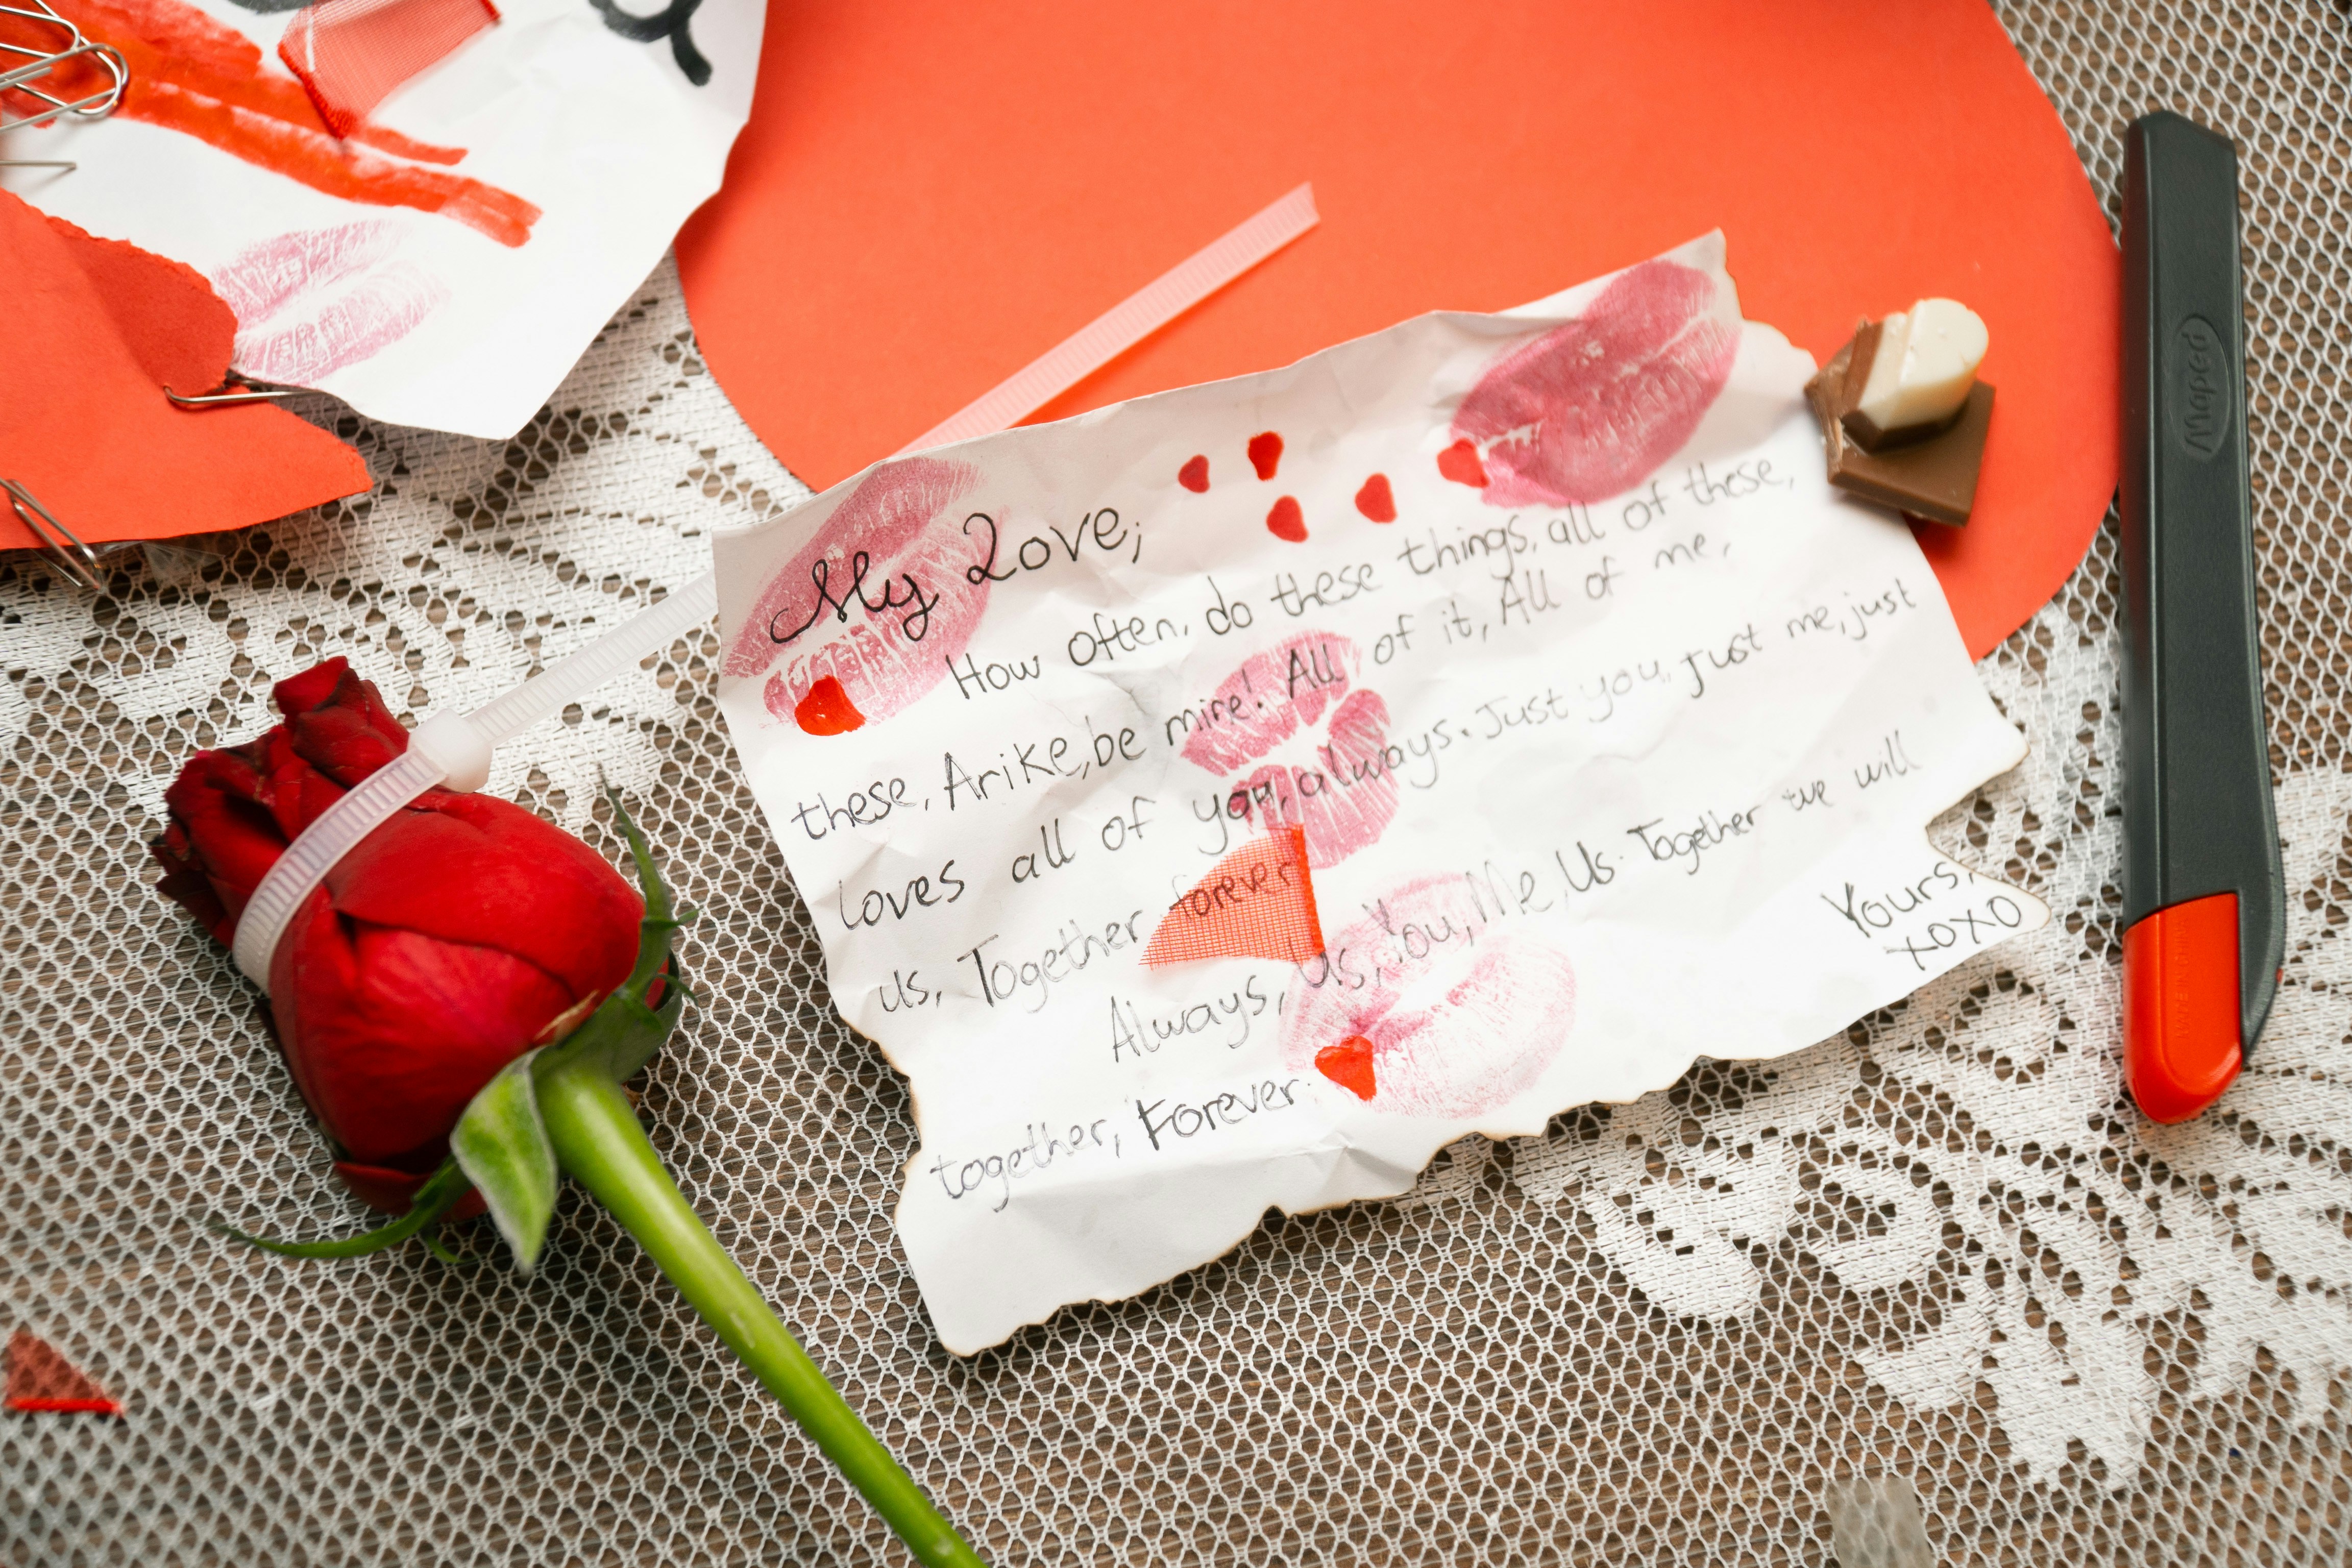 My Love;
How often, do these things, all of these,
these, Arike, be mine! All of it, All of me,
loves all of you, always. Just you, just me, just
us, Together forever
Always, Us, You, Me, Us. Together we will
together, Forever.
Yours,
xoxo
Maped